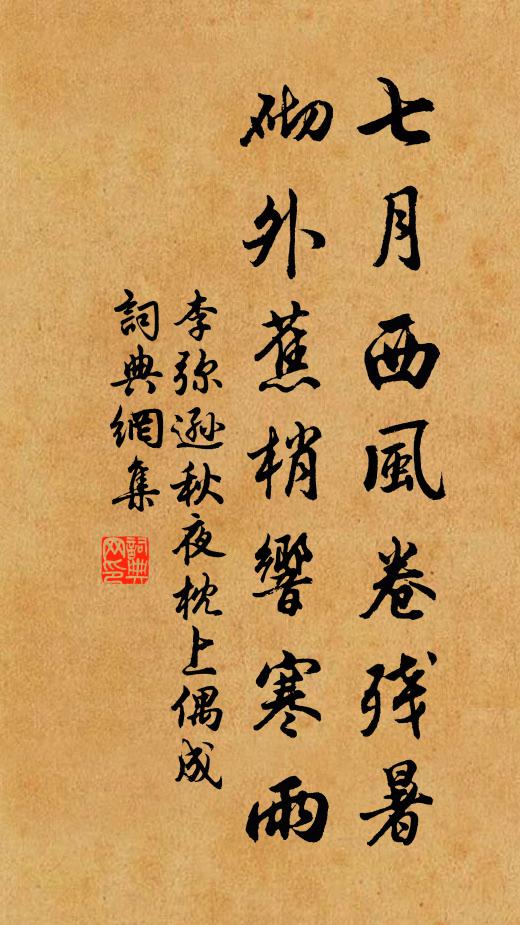 七月西風卷残暑
砌外蕉梢響寒雨
李弥遜秋夜枕上偶成
詞典網集
詞典网印